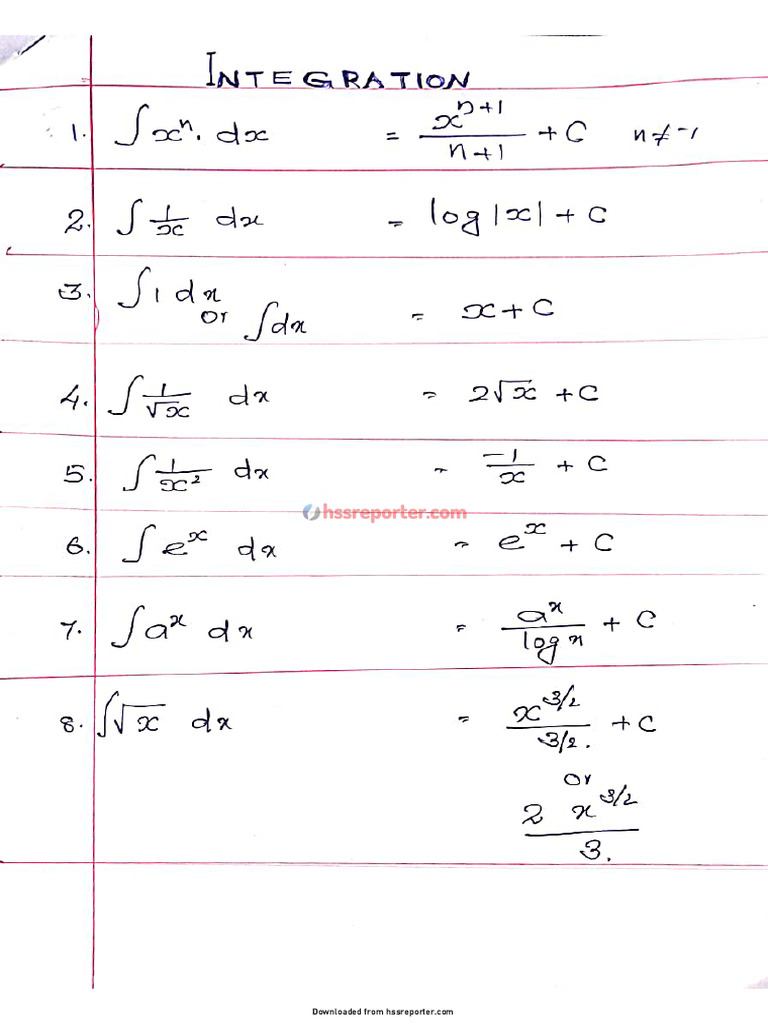 INTEGRATION
1. ∫xⁿ. dx = xⁿ⁺¹/n+1 + C n≠-1
2. ∫ 1/x dx = log|x| + C
3. ∫1 dx or ∫dx = x + C
4. ∫ 1/√x dx = 2√x + C
5. ∫ 1/x² dx = -1/x + C
hssreporter.com
6. ∫ eˣ dx = eˣ + C
7. ∫ aˣ dx = aˣ/log x + C
8. ∫√x dx = x^3/2 / 3/2. + C
or
2 x^3/2 / 3.
Downloaded from hssreporter.com